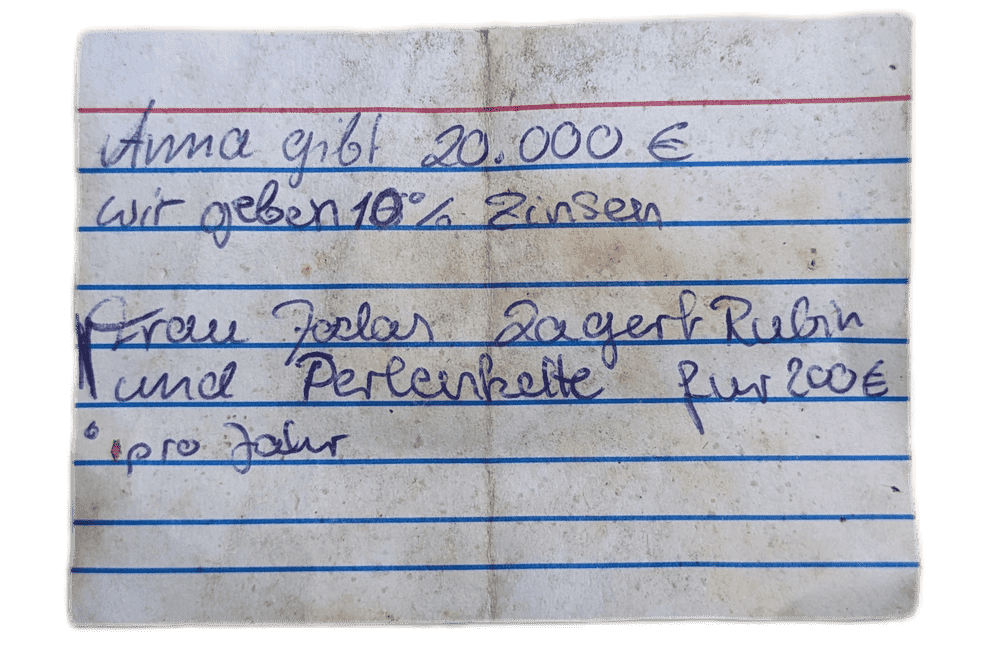 Anna gibt 20.000 €
wir geben 10% Zinsen
Frau Jodas lagert Rubin
und Perlenkette für 200 €
pro Jahr